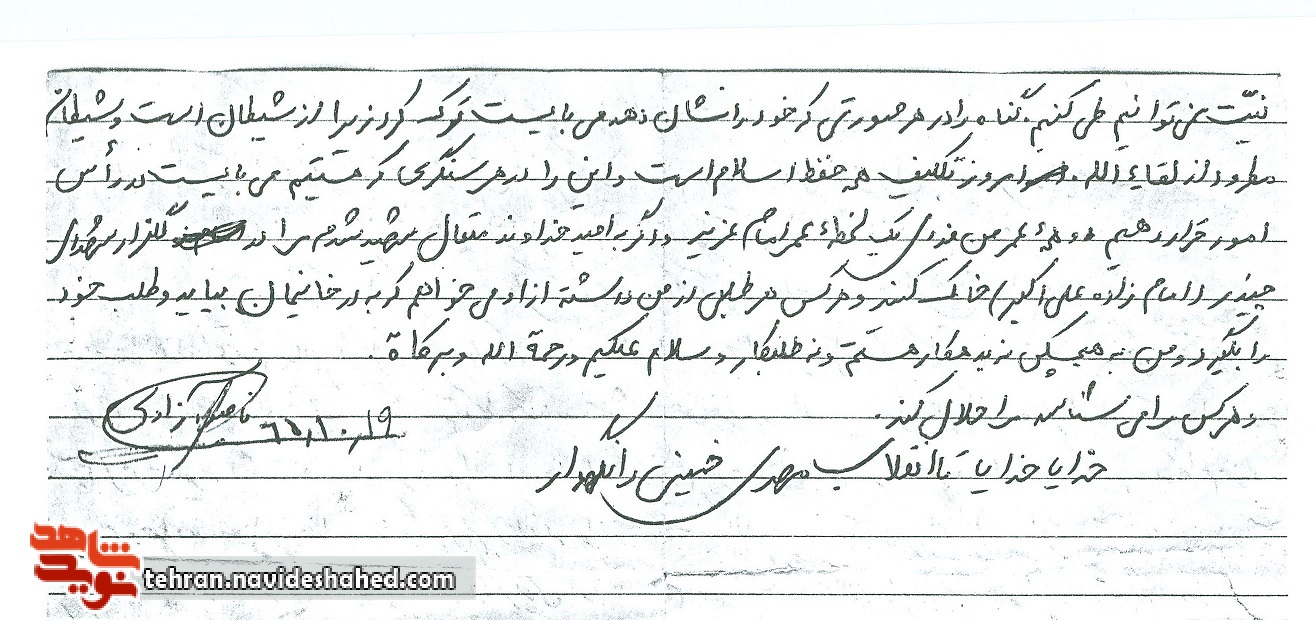 نیّت می توانیم طی کنیم. گناه را در هر صورتی که خود را نشان دهد می بایست ترک کرد زیرا از شیطان است و شیطان
مطرود از لقاء الله. امروز تکلیف همه حفظ اسلام است و این را در هر سنگری که هستیم می بایست در رأس
امور قرار دهیم همهٔ عمر من فدای یک لحظهٔ عمر امام عزیز و اگر به امید خداوند متعال شهید شدم مرا در گلزار شهدای
چیذر (امام زاده علی اکبر) خاک کنند و هر کس هر طلبی از من داشته از او می خواهم که به در خانیمان بیاید و طلب خود
را بگیرد و من به هیچکس نه بدهکار هستم و نه طلبکار و سلام علیکم و رحمة الله و برکاة.
و هر کس مرا می شناسد مرا حلال کند.
ناصر آزادی
۶۵،۱۰،۱۹
خدایا خدایا تا انقلاب مهدی خمینی را نگهدار
شاهد
نوید
tehran.navideshahed.com